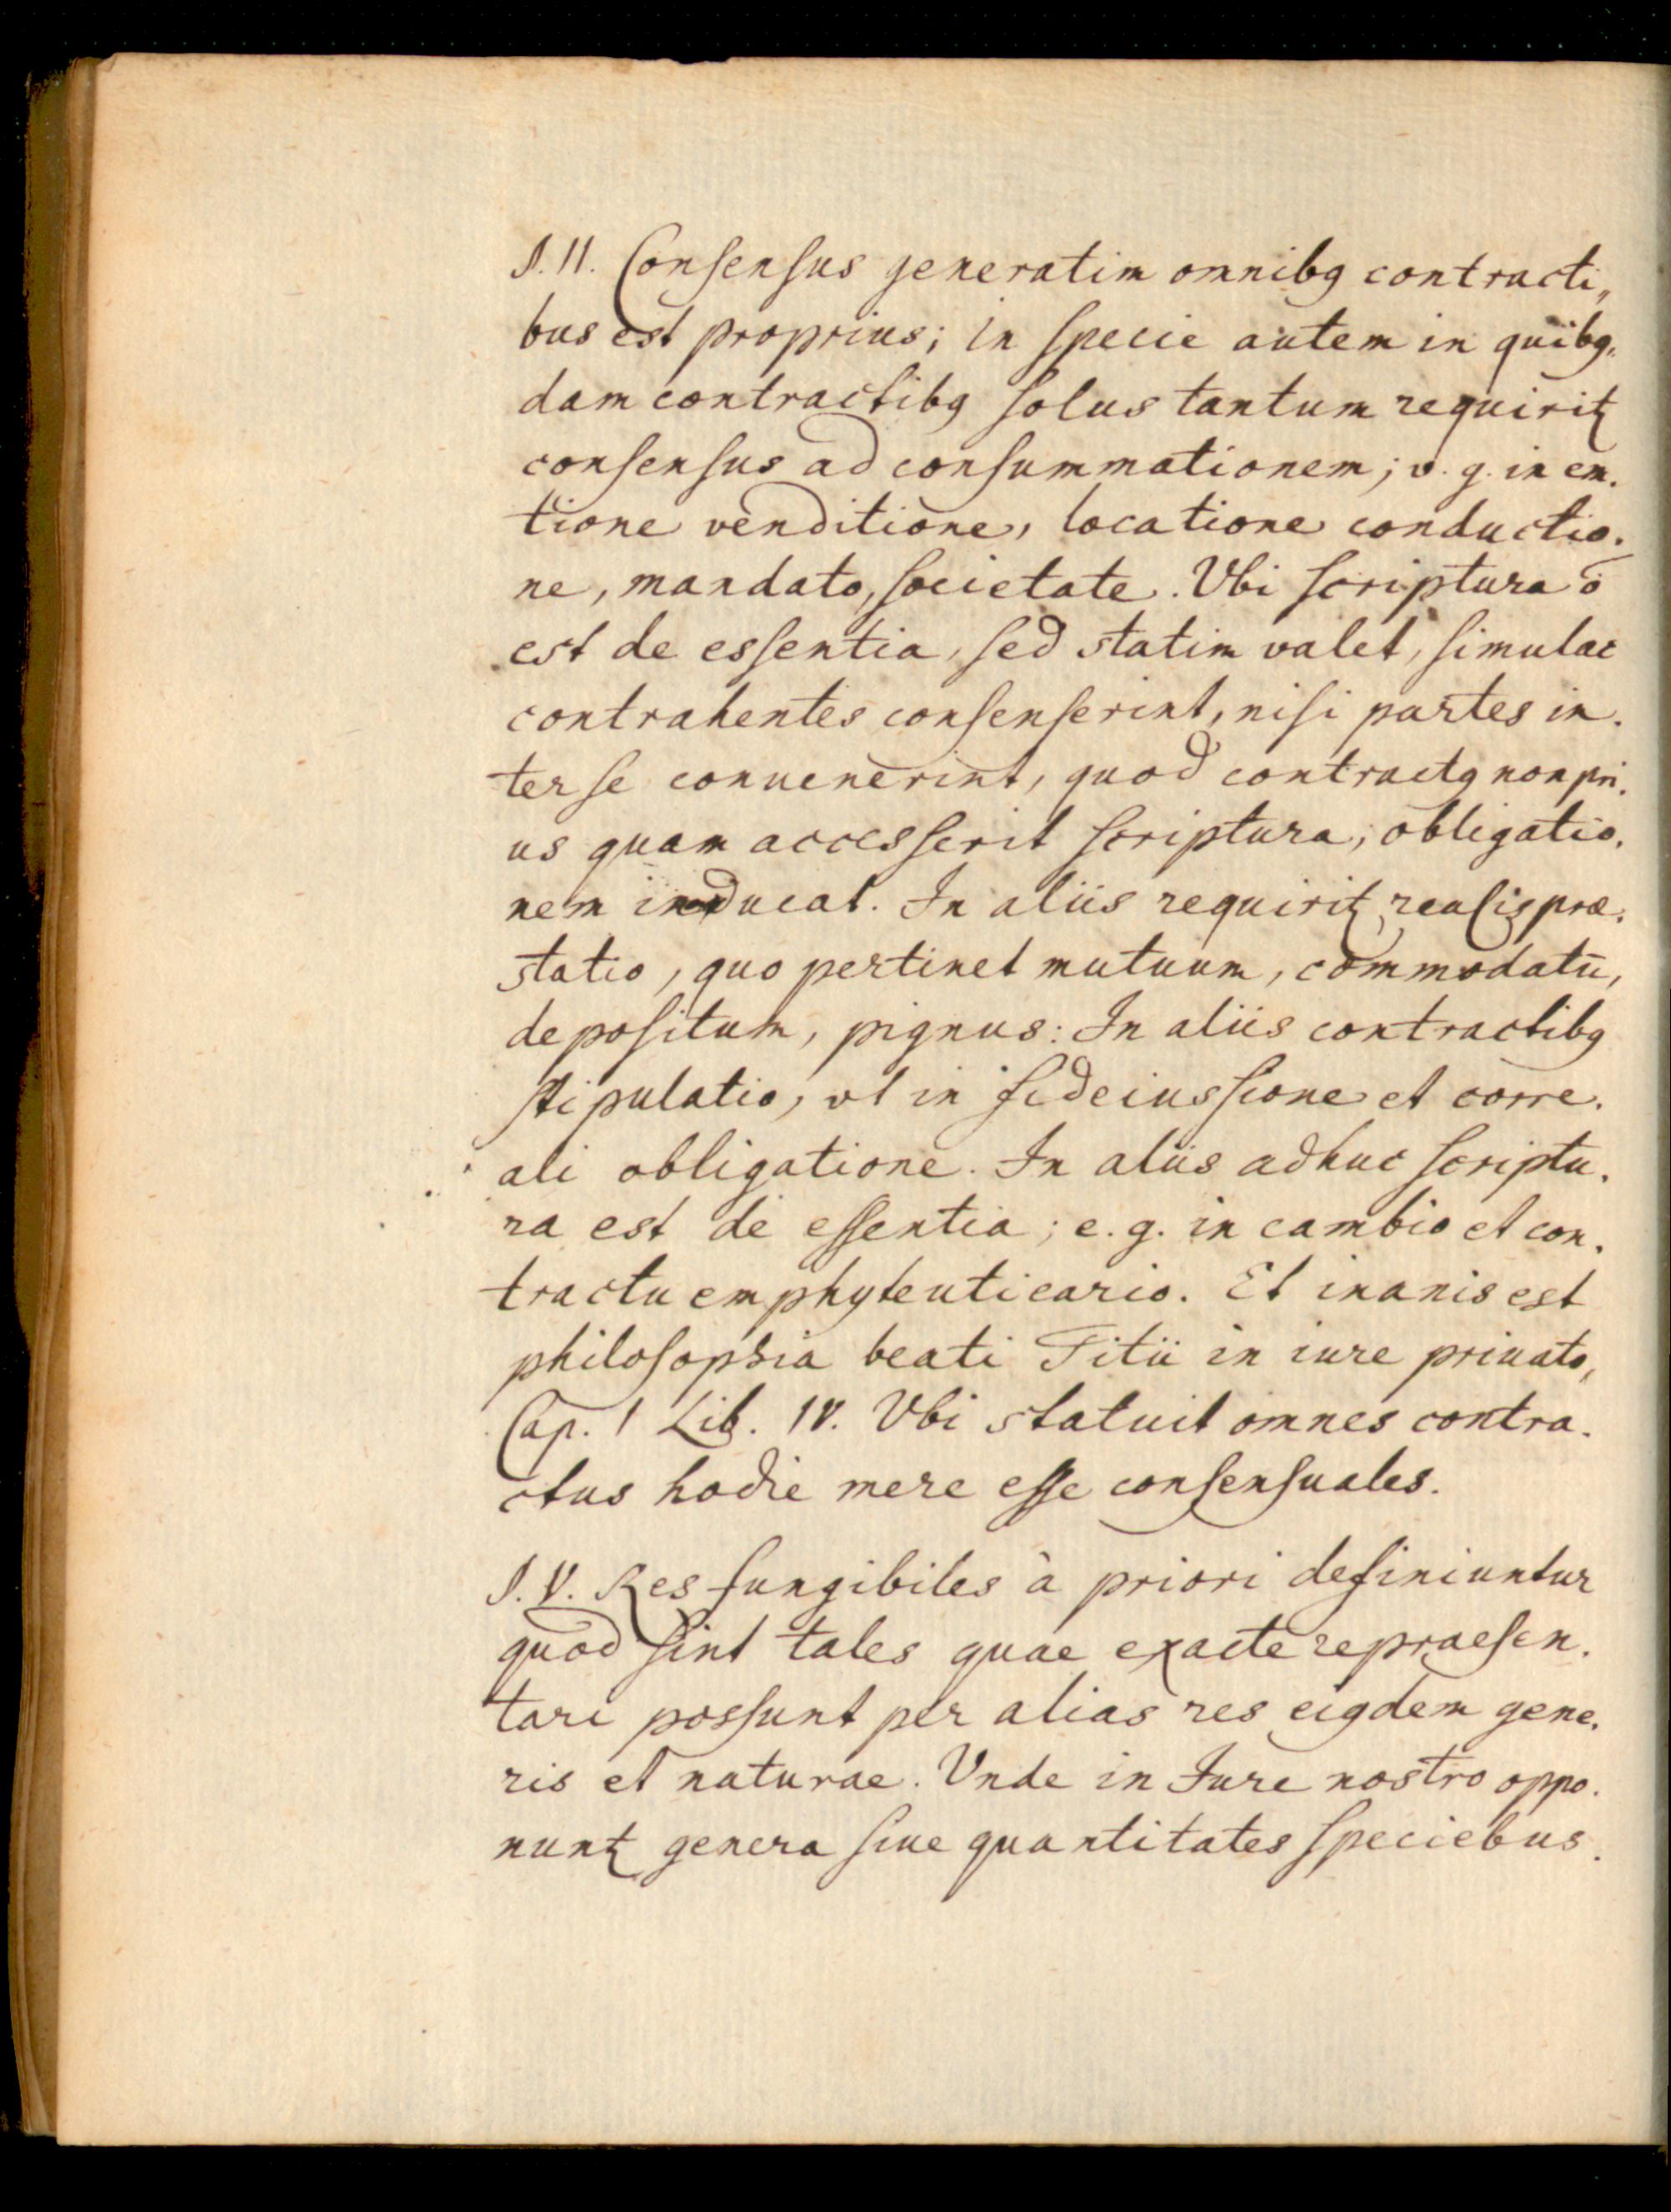 §. II. Consensus generatim omnibꝰ contracti„
bus est proprius; in specie autem in quibꝰ.
dam contractibꝰ solus tantum requiritꝛ
consensus ad consummationem; v. g. in em.
tione venditione, locatione conductio.
ne, mandato, societate. Vbi scriptura õ
est de essentia, sed statim valet, simulac
contrahentes consenserint, nisi partes in.
ter se conuenerint, quod contractꝰ non pri.
us quam accesserit scriptura, obligatio.
nem inducat. In aliis requiritꝛ realis præ.
statio, quo pertinet mutuum, commodatū,
depositum, pignus: In aliis contractibꝰ
stipulatio, vt in fideiussione et corre.
ali obligatione. In aliis adhuc scriptu.
ra est de essentia; e. g. in cambio et con.
tractu emphyteuticario. Et inanis est
philosophia beati Titii in iure priuato,
Cap. I Lib. IV. Vbi statuit omnes contra.
ctus hodie mere esse consensuales.
§. V. Res fungibiles à priori definiuntur
quod sint tales quae exacte repraesen.
tari possunt per alias res eiꝰdem gene.
ris et naturae. Vnde in Jure nostro oppo.
nuntꝛ genera siue quantitates speciebus.